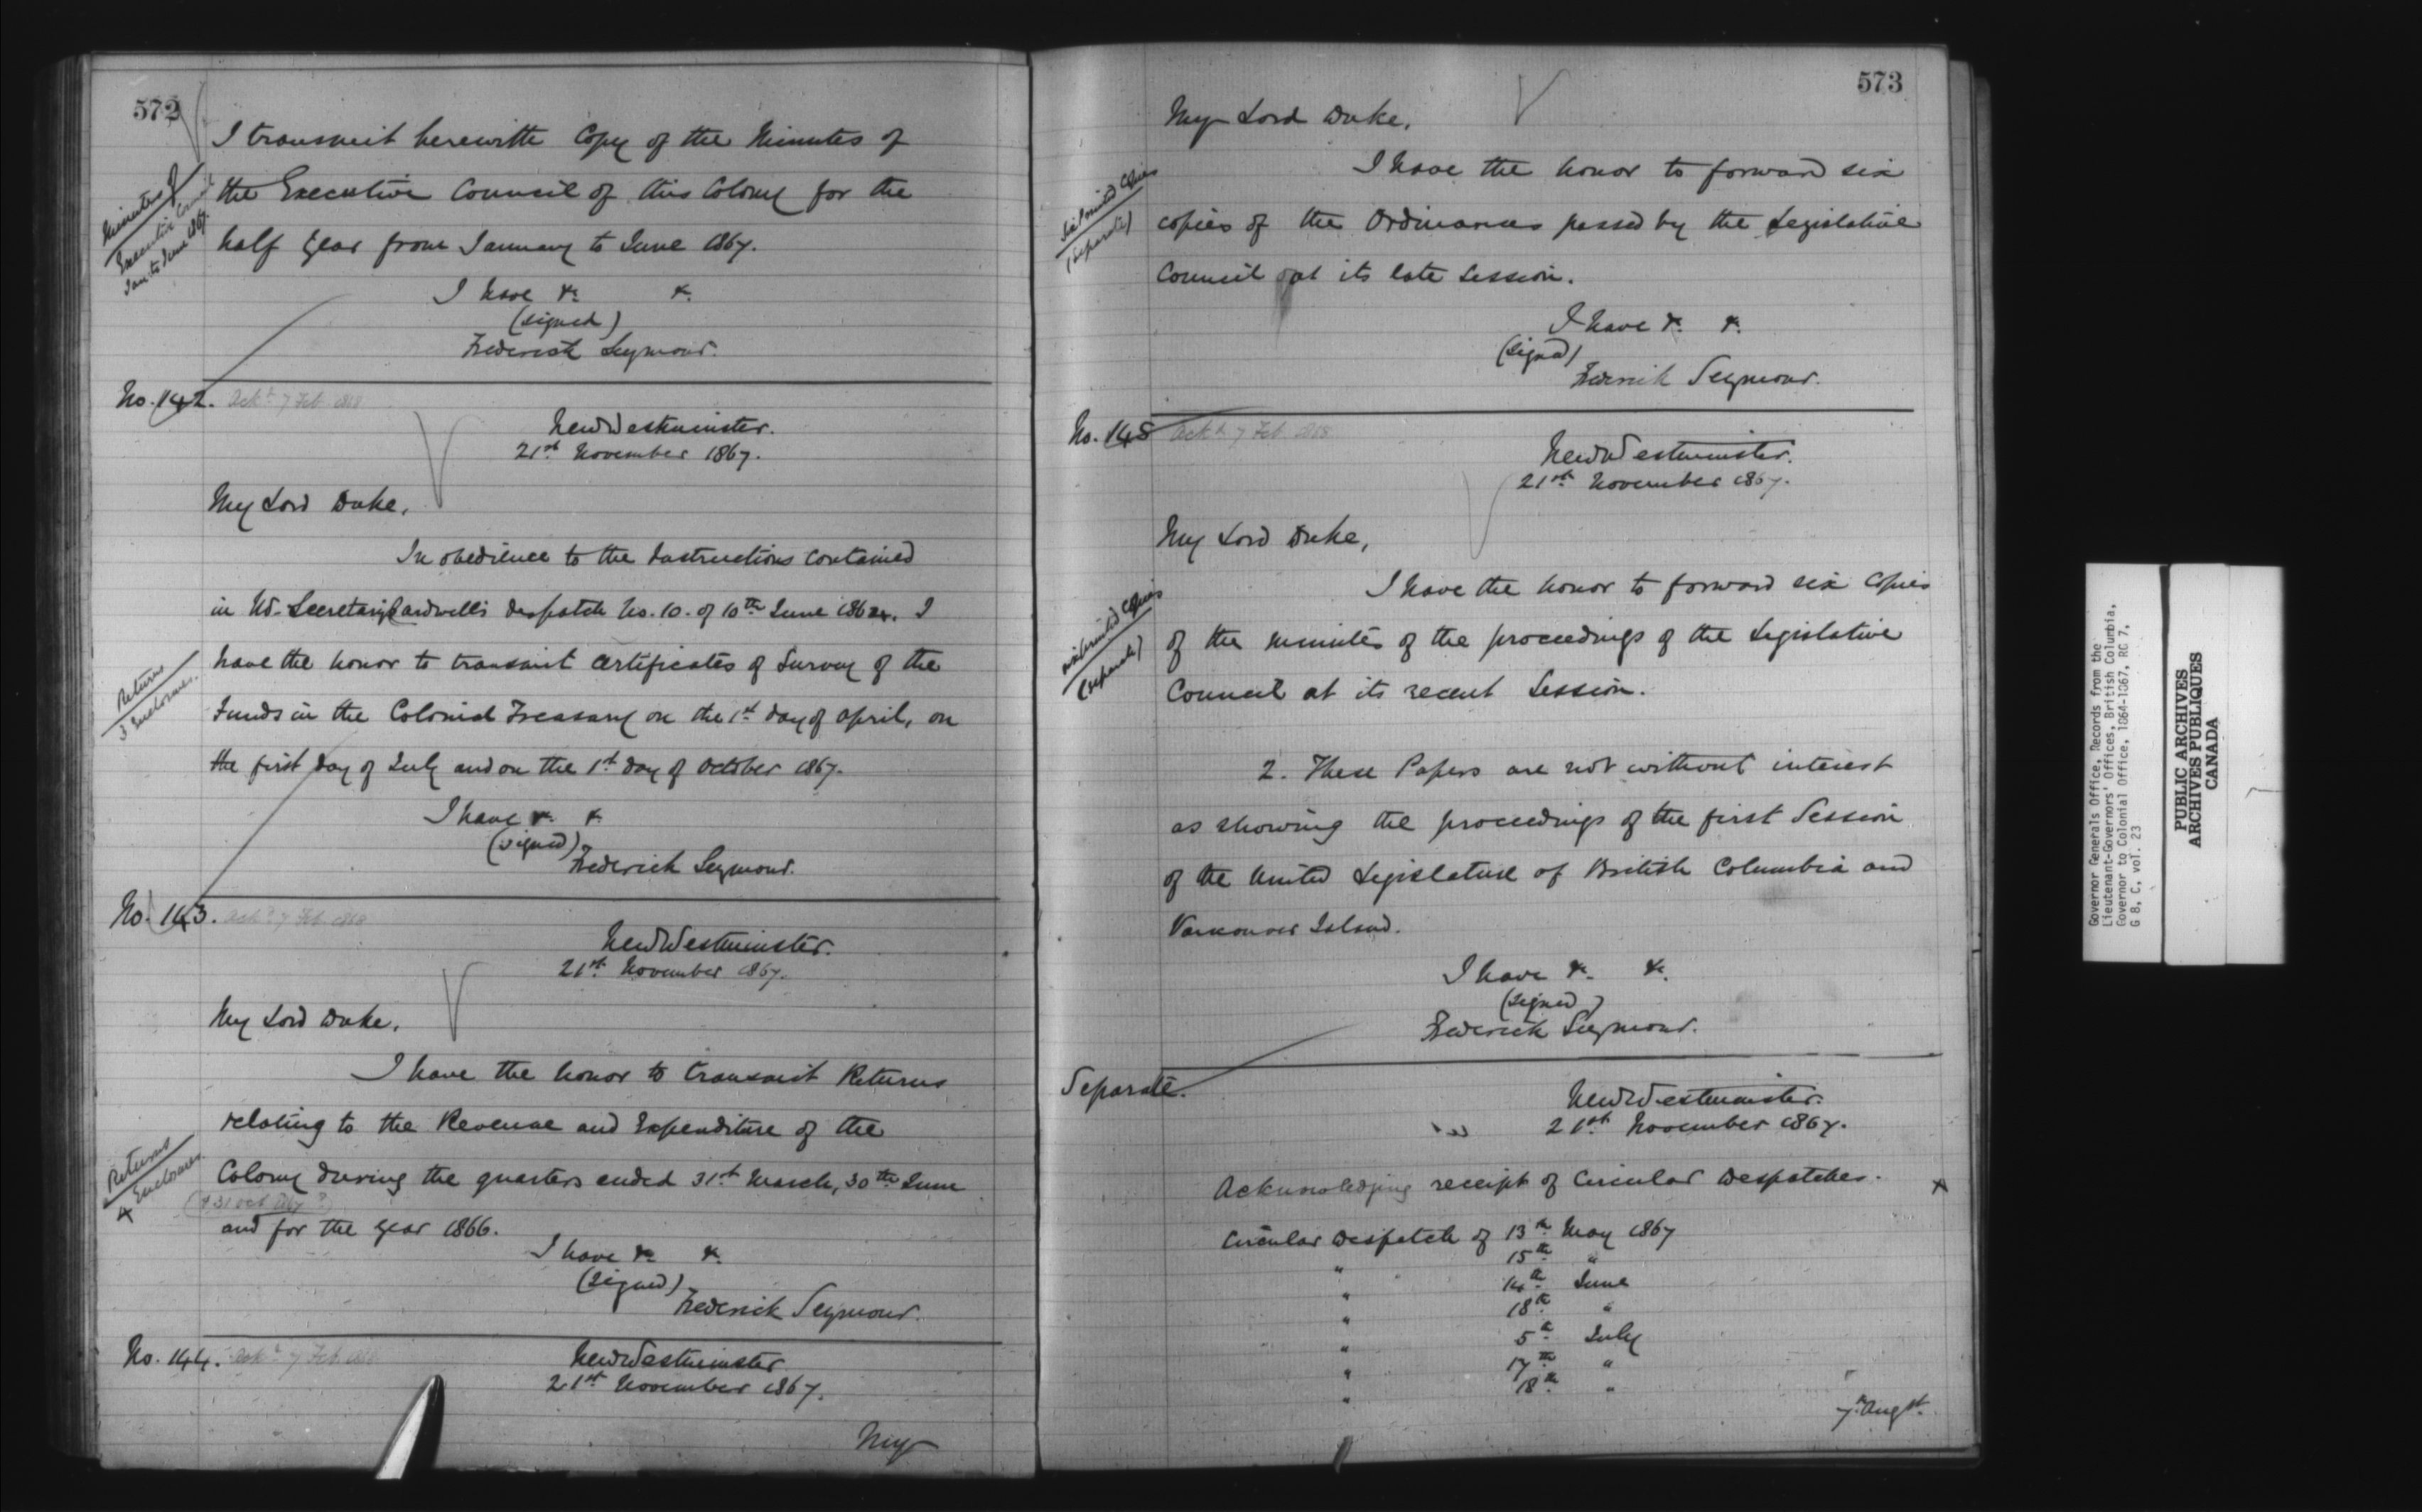 572
I transmit herewith Copy of the Minutes of
the Executive Council of this Colony for the
half year from January to June 1867.
Minutes of
Executive Council
Jan. to June 1867.
I have &c. &c.
(signed)
Frederick Seymour.
No. 142. Ackd 7 Feb 1868
New Westminster.
21st November 1867.
My Lord Duke,
In obedience to the Instructions contained
in Mr. Secretary Cardwell's despatch No. 10. of 10th June 1864. I
have the honor to transmit Certificates of Survey of the
Funds in the Colonial Treasury on the 1st day of April, on
the first day of July and on the 1st day of October 1867.
Returns
3 Enclosures.
I have &c. &c.
(signed)
Frederick Seymour.
No. 143. Ackd 7 Feb 1868
New Westminster.
21st November 1867.
My Lord Duke,
I have the honor to transmit Returns
relating to the Revenue and Expenditure of the
Colony during the quarters ended 31st March, 30th June
(& 31 Oct 1867?)
and for the year 1866.
Returns
4 Enclosures.
I have &c. &c.
(signed)
Frederick Seymour.
No. 144. Ackd 7 Feb 1868
New Westminster
21st November 1867.
My
573
My Lord Duke,
I have the honor to forward six
copies of the Ordinances passed by the Legislative
Council at its late Session.
Six printed Copies
(separate)
I have &c. &c.
(signed)
Frederick Seymour.
No. 145 Ackd 7 Feb 1868
New Westminster.
21st November 1867.
My Lord Duke,
I have the honor to forward six Copies
of the minutes of the proceedings of the Legislative
Council at its recent Session.
six printed Copies
(separate)
2. These Papers are not without interest
as showing the proceedings of the first Session
of the United Legislature of British Columbia and
Vancouver Island.
I have &c. &c.
(signed)
Frederick Seymour.
Separate.
New Westminster.
21st November 1867.
Acknowledging receipt of Circular Despatches. x
Circular Despatch of 13th May 1867
" 15th "
" 14th June
" 18th "
" 5th July
" 17th "
" 18th "
7th Augst.
Governor Generals Office, Records from the
Lieutenant-Governors' Offices, British Columbia,
Governor to Colonial Office, 1864-1867, RG 7,
G 8, C, vol. 23
PUBLIC ARCHIVES
ARCHIVES PUBLIQUES
CANADA